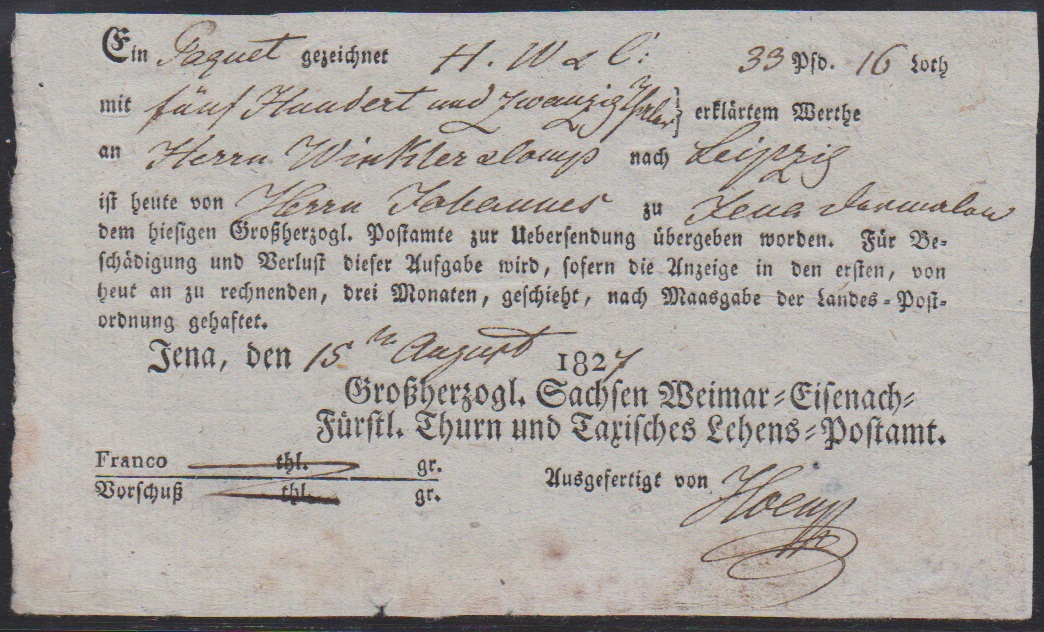 Ein Paquet gezeichnet H. W & C: 33 Pfd. 16 Loth
mit fünf Hundert und zwanzig Thlr. } erklärtem Werthe
an Herrn Winkler & Comp nach Leipzig
ist heute von Herrn Johannes zu Jena
dem hiesigen Großherzogl. Postamte zur Uebersendung übergeben worden. Für Be-
schädigung und Verlust dieser Aufgabe wird, sofern die Anzeige in den ersten, von
heut an zu rechnenden, drei Monaten, geschieht, nach Maasgabe der Landes-Post-
ordnung gehaftet.
Jena, den 15n August 1827
Großherzogl. Sachsen Weimar-Eisenach-
Fürstl. Thurn und Taxisches Lehens-Postamt.
Franco thl. gr.
Vorschuß thl. gr.
Ausgefertigt von